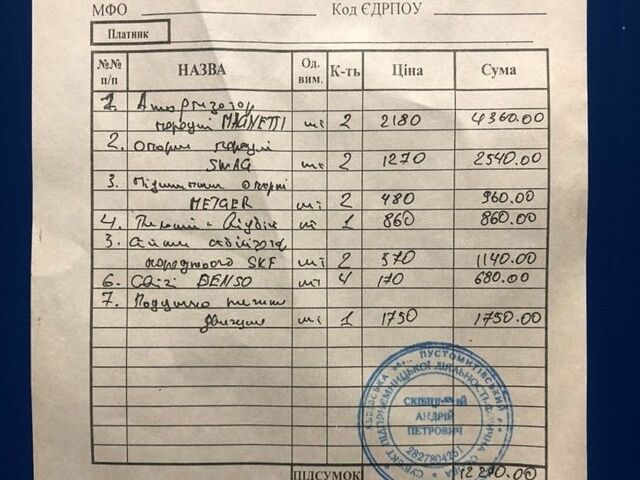 МФО Код ЄДРПОУ
Платник
№№ п/п НАЗВА Од. вим. К-ть Ціна Сума
1. Амортизатор
передні MAGNETTI шт 2 2180 4360.00
2. Опори передні
SWAG шт 2 1270 2540.00
3. Підшипник опорні
METGER шт 2 480 960.00
4. шт 1 860 860.00
3. стабілізатор
переднього SKF шт 2 570 1140.00
6. Свічі DENSO шт 4 170 680.00
7. Подушка
двигуна шт 1 1750 1750.00
ПУСТОМИТІВСЬКИЙ
СУБ'ЄКТ ПІДПРИЄМНИЦЬКОЇ ДІЯЛЬНОСТІ
АНДРІЙ
ПЕТРОВИЧ
ПІДСУМОК 12290.00